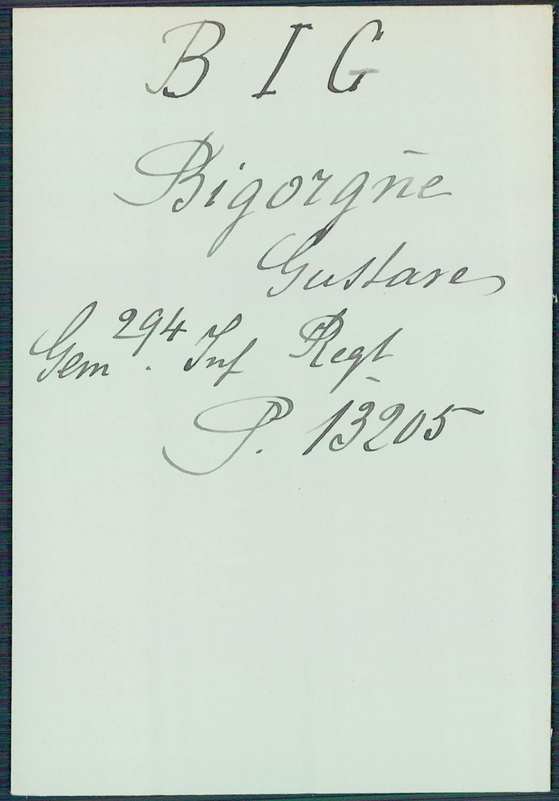 B I G
Bigorgne
Gustave
Gem. 294 Inf Regt
P. 13205